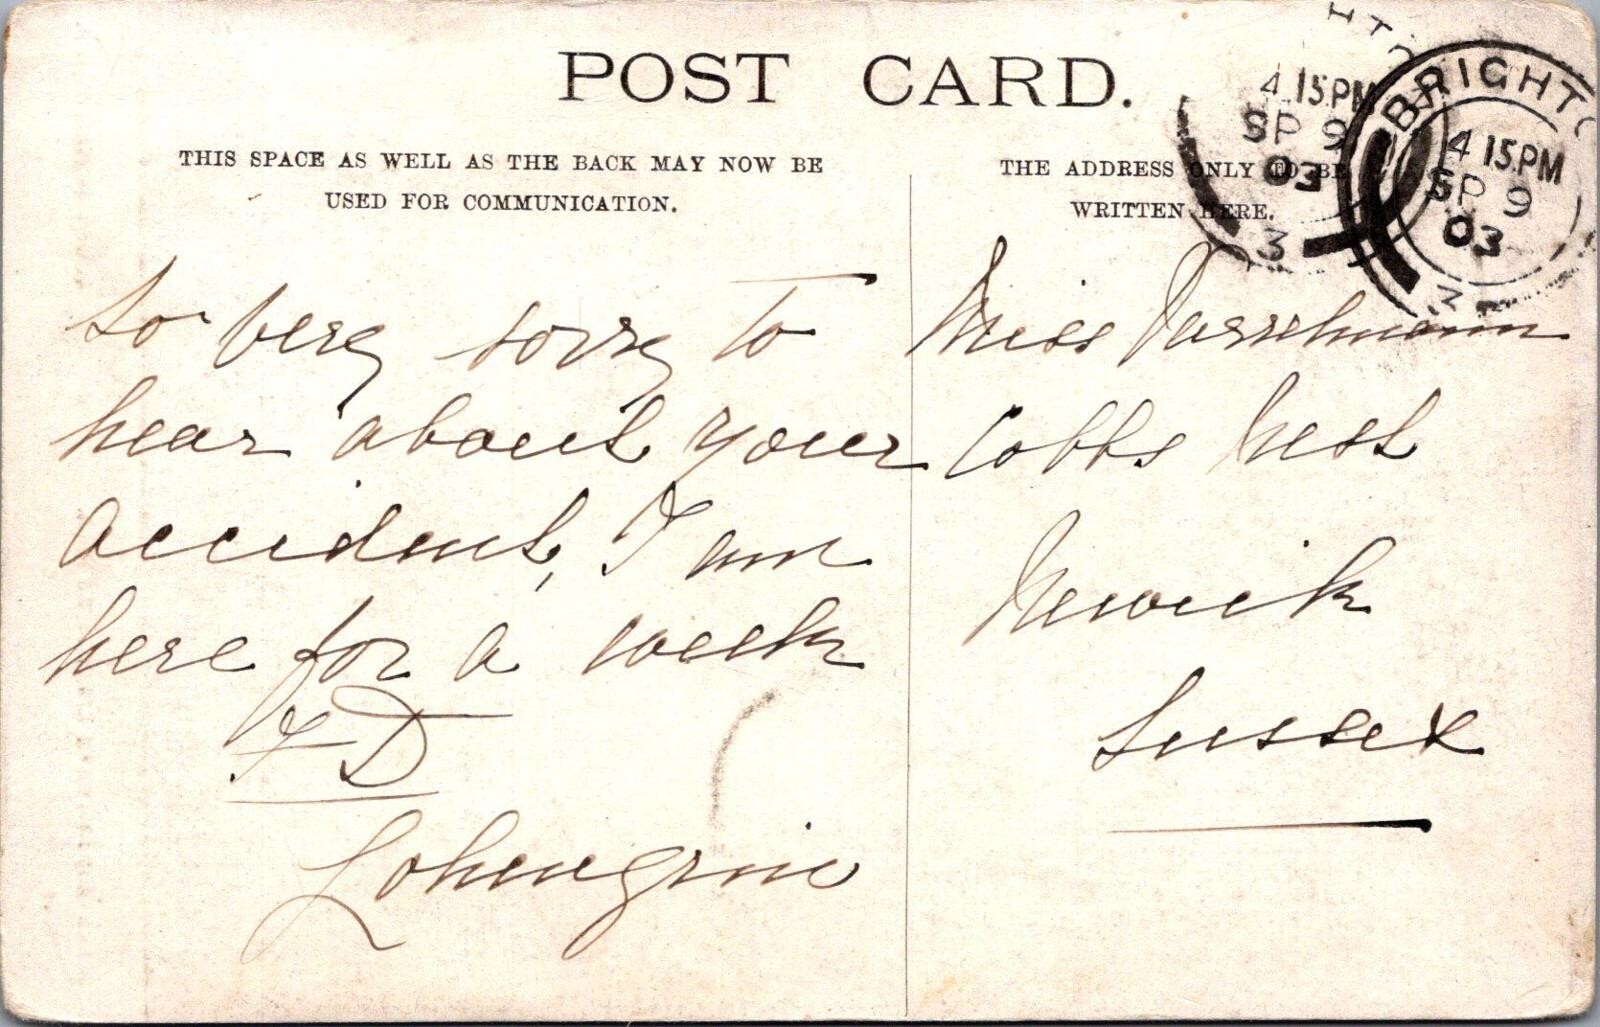 POST CARD.
THIS SPACE AS WELL AS THE BACK MAY NOW BE
USED FOR COMMUNICATION.
So very sorry to
hear about your
accident, I am
here for a week
FD
Lohengrin
THE ADDRESS ONLY TO BE
WRITTEN HERE.
HTO
4.15PM
SP 9
03
3
BRIGHTO
4 15.PM
SP 9
03
3
Miss
Cobbs Nest
Newick
Sussex